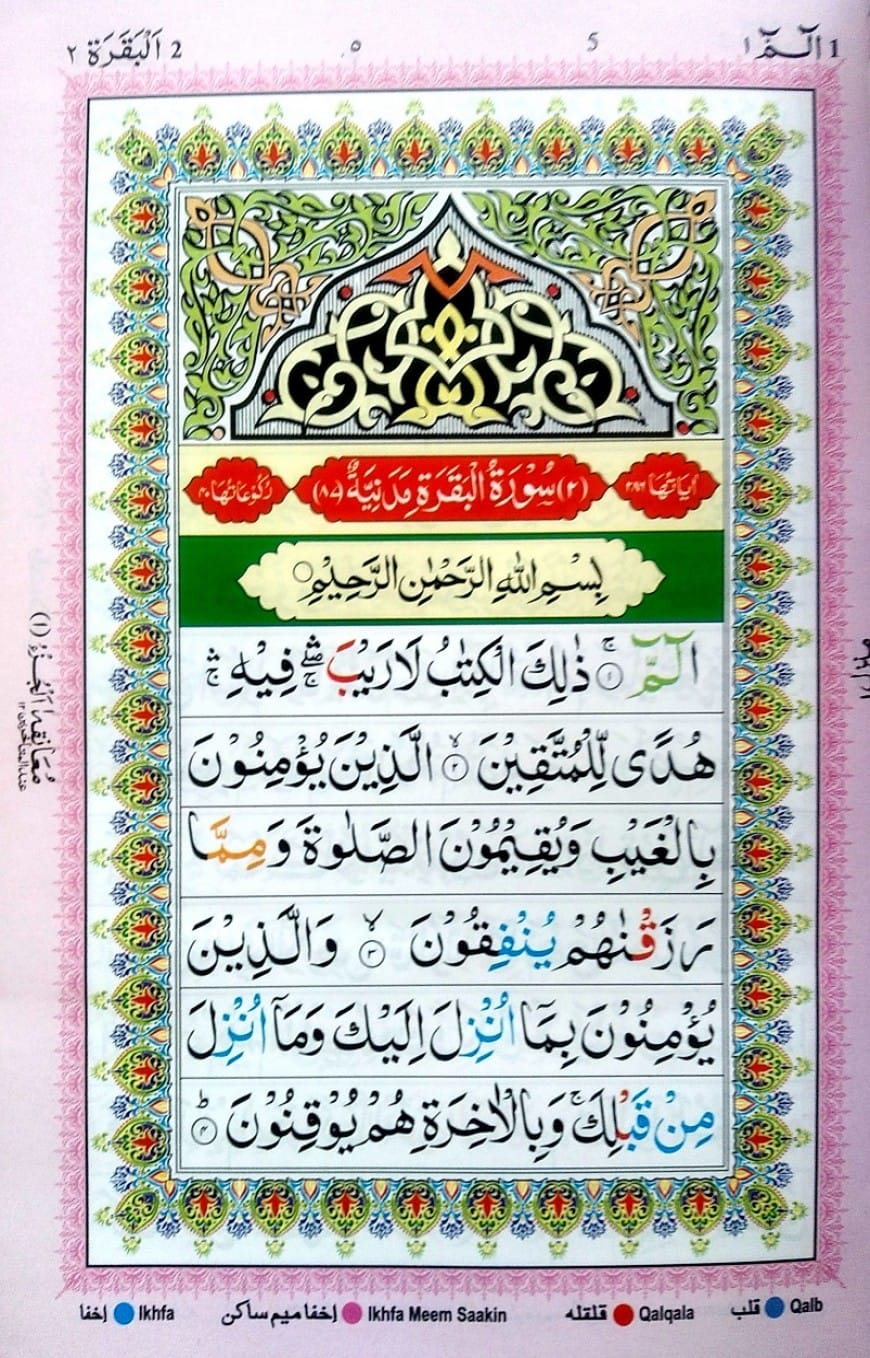 1 الٓـمّٓ ١ 5 ٥ 2 اَلْبَقَرَة ٢
اٰيَاتُهَا ٢٨٦ (٢) سُوْرَةُ الْبَقَرَةِ مَدَنِيَّةٌ (٨٧) رُكُوْعَاتُهَا ٤٠
بِسْمِ اللّٰهِ الرَّحْمٰنِ الرَّحِيْمِ
الٓمّٓ ۚ ﴿١﴾ ذٰلِكَ الْكِتٰبُ لَا رَيْبَ ۛۖۚ فِيْهِ ۛۚ
هُدًى لِّلْمُتَّقِيْنَ ۙ ﴿٢﴾ الَّذِيْنَ يُؤْمِنُوْنَ
بِالْغَيْبِ وَيُقِيْمُوْنَ الصَّلٰوةَ وَمِمَّا
رَزَقْنٰهُمْ يُنْفِقُوْنَ ۙ ﴿٣﴾ وَالَّذِيْنَ
يُؤْمِنُوْنَ بِمَآ اُنْزِلَ اِلَيْكَ وَمَآ اُنْزِلَ
مِنْ قَبْلِكَ ۚ وَبِالْاٰخِرَةِ هُمْ يُوْقِنُوْنَ ؕ ﴿٤﴾
مُعَانِقَه الْجُزْءُ (١)
Qalb قلب Qalqala قلقله Ikhfa Meem Saakin إخفا ميم ساكن Ikhfa إخفا